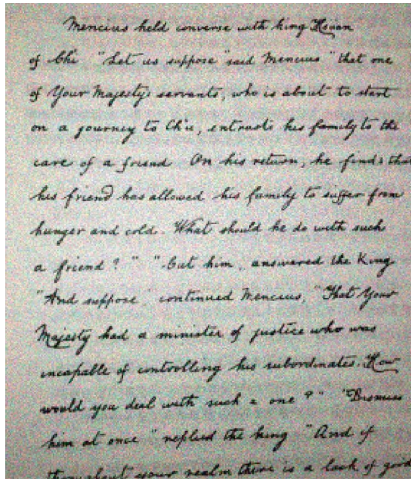 Mencius held converse with King Hsuan
of Ch'i "Let us suppose" said Mencius "that one
of Your Majesty's servants, who is about to start
on a journey to Ch'u, entrusts his family to the
care of a friend On his return, he finds that
his friend has allowed his family to suffer from
hunger and cold. What should he do with such
a friend?" "Cut him, answered the King
"And suppose" continued Mencius, "That Your
Majesty had a minister of justice who was
incapable of controlling his subordinates. How
would you deal with such a one?" "Dismiss
him at once" replied the King "And if
throughout your realm there is a lack of good